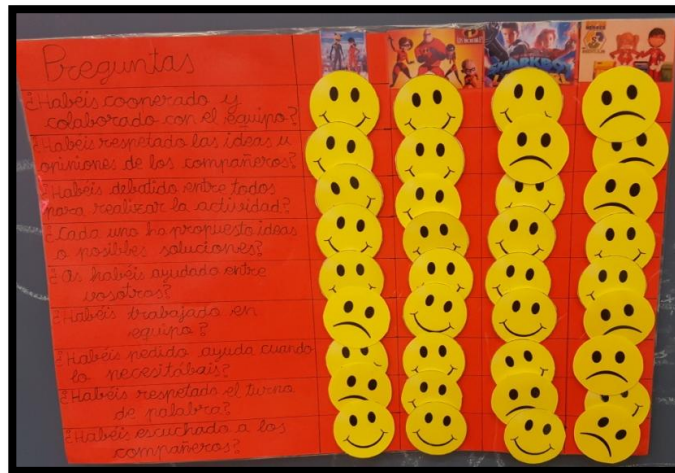 Preguntas
¿Habéis cooperado y
colaborado con el equipo?
¿Habéis respetado las ideas u
opiniones de los compañeros?
¿Habéis debatido entre todos
para realizar la actividad?
¿Cada uno ha propuesto ideas
o posibles soluciones?
¿Os habéis ayudado entre
vosotros?
¿Habéis trabajado en
equipo?
¿Habéis pedido ayuda cuando
lo necesitábais?
¿Habéis respetado el turno
de palabra?
¿Habéis escuchado a los
compañeros?
SHARKBOY